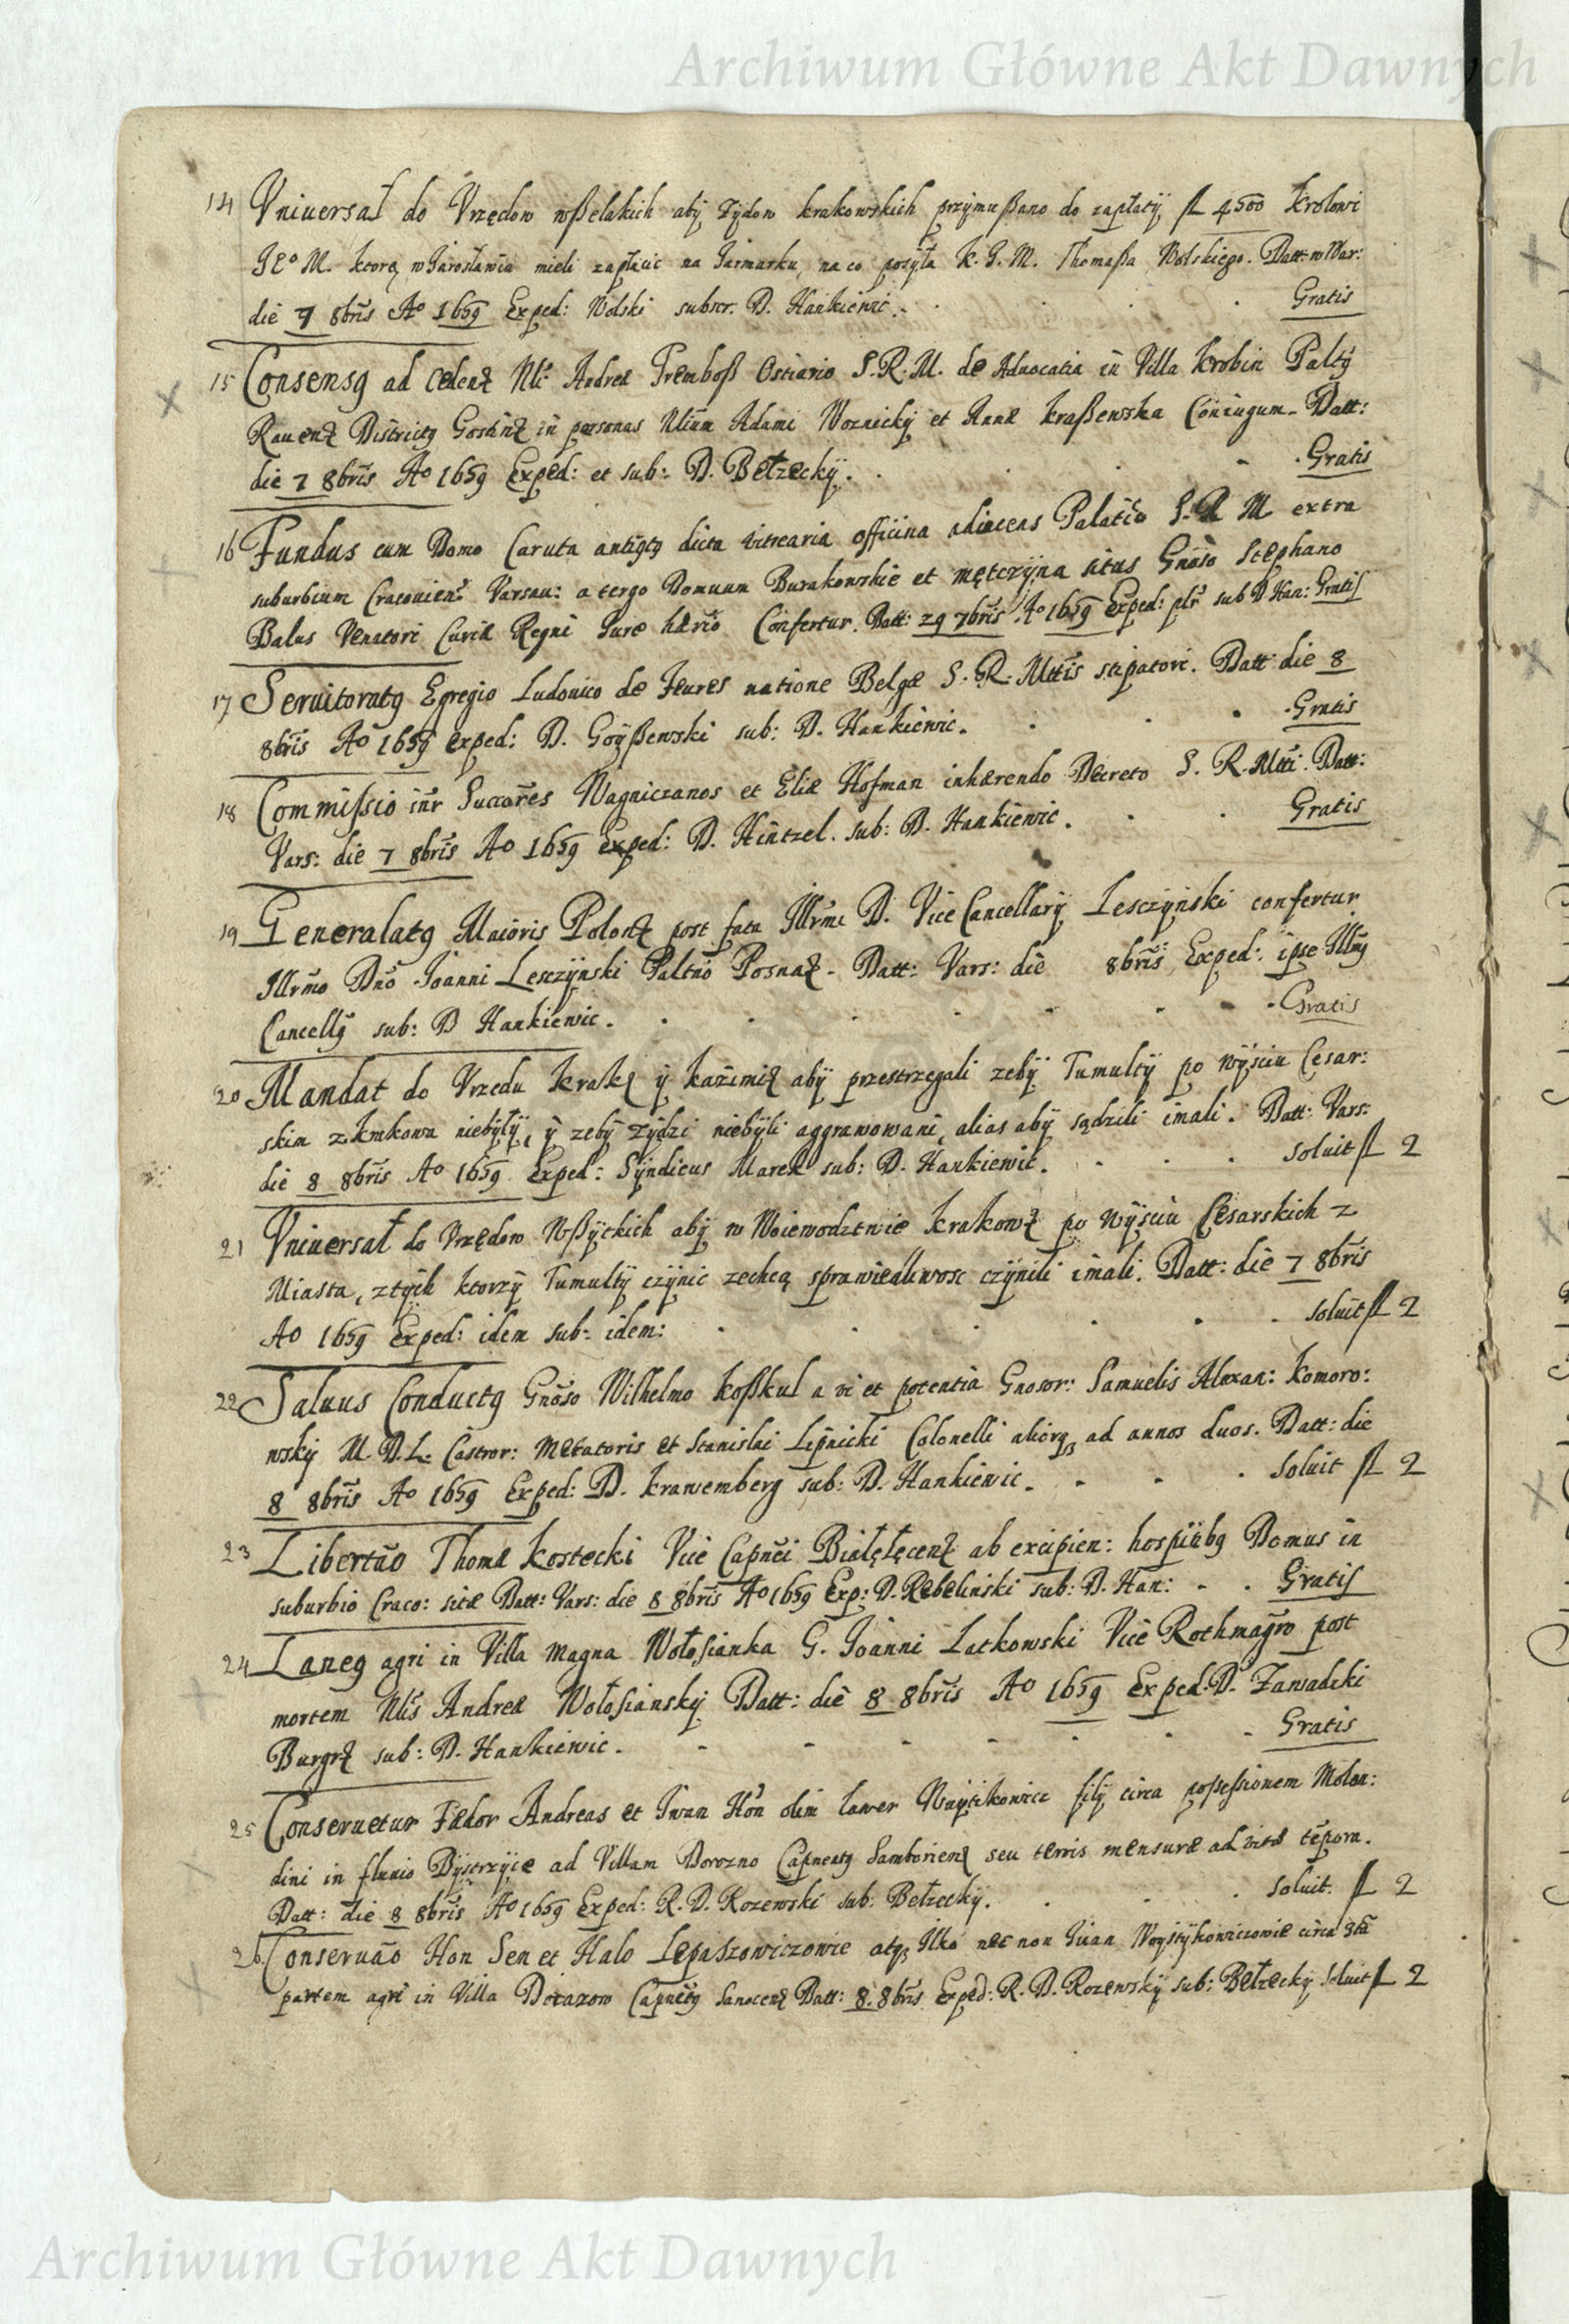 Archiwum Główne Akt Dawnych
14 Vniuersał do Vrzędow wßelakich abÿ Zÿdow krakowskich przÿmußano do zapłatÿ fl 4500 Krolowi
JE° M. ktorą w Jarosławiu mieli zapłacic na Jarmarku, na co posÿła K. J. M. Thomaßa Wolskiego. Datt. w War:
die 7 8bris A° 1659 Exped: Wolski subscr. D. Hankiewic. Gratis
15 Consensꝯ ad cedenꝫ Nli Andreæ Tremboß Ostiario S. R. M. de Aduocatia in Villa Krobin Paltꝯ
Rauenꝫ Districtꝯ Gostinꝫ in personas Nlium Adami Woznickÿ et Annæ kraßewska Coniugum. Datt:
die 7 8bris A° 1659 Exped: et sub: D. Bełzeckÿ. Gratis
16 Fundus cum Domo Caruta antiqtꝯ dicta vitrearia officina adiacens Palatio S. R. M. extra
suburbium Cracouienꝫ Varsau: a tergo Domuum Burakowskie et mętczÿna situs Gnoso Stephano
Balus Venatori Curiæ Regni Jure hærio Confertur. Datt: 29 7bris A° 1659 Exped: plr sub D Han: Gratis
17 Seruitoratꝯ Egregio Ludouico de Feures natione Belgæ S. R. Mttis stipatori. Datt: die 8
8bris A° 1659 exped: D. Goÿßewski sub: D. Hankiewic. Gratis
18 Commissio inr Succores Wagniczanos et Eliæ Hofman inhærendo Decreto S. R. Mtti. Datt:
Vars: die 7 8bris A° 1659 Exped: D. Hintzel. sub: D. Hankiewic. Gratis
19 Generalatꝯ Maioris Polonꝫ post fata Illrmi D. Vice Cancellarÿ Lesczÿnski confertur
Illrmo Dno Joanni Lesczÿnski Paltno Posnaꝫ. Datt: Vars: die 8bris Exped: ipse Illmꝯ
Cancellꝯ sub: D Hankiewic. Gratis
20 Mandat do Vrzedu Krakꝫ ÿ kazimiꝫ abÿ przestrzegali zebÿ Tumultÿ po wÿsciu Cesar:
skim z krakowa niebÿłÿ, ÿ zebÿ zÿdzi niebÿli aggrawowani, alias abÿ sądzili imali. Datt: Vars:
die 8 8bris A° 1659 Exped: Sÿndicus Marek sub: D. Hankiewic. soluit fl 2
21 Vniuersał do Vrzędow Wßÿtkich abÿ w Woiewodztwie krakowꝫ po wÿsciu Cesarskich z
Miasta, z tÿch ktorzÿ Tumultÿ czÿnic zechcą sprawiedliwosc czÿnili imali. Datt: die 7 8bris
A° 1659 Exped: idem sub: idem: soluit fl 2
22 Saluus Conductꝯ Gnoso Wilhelmo Koßkul a vi et potentia Gnosor: Samuelis Alexan: Komoro:
wskÿ M. D. L. Castror: metatoris et Stanislai Lipnicki Colonelli aliorꝫ ad annos duos. Datt: die
8 8bris A° 1659 Exped: D. krawemberg sub: D. Hankiewic. soluit fl 2
23 Libertao Thomæ Kostecki Vice Capnei Białłęcenꝫ ab excipien: hospitibꝯ Domus in
suburbio Craco: sitæ Datt: Vars: die 8 8bris A° 1659 Exp: D. Rebelinski sub: D. Han: Gratis
24 Laneꝯ agri in Villa magna Wołosianka G. Joanni Latkowski Vice Rothmagro post
mortem Nlis Andreæ Wołosianskÿ Datt: die 8 8bris A° 1659 Exped. D. Zawadzki
Burgrꝫ sub: D. Hankiewic. Gratis
25 Conseruetur Fedor Andreas et Iwan Hon olim lawer Waÿtikowicz filÿ circa possessionem Molen:
dini in fluuio Dÿstrzÿce ad Villam Dorozno Capneatꝯ Samborienꝫ seu terris mensuræ ad vitæ tepora.
Datt: die 8 8bris A° 1659 Exped: R. D. Rozewski sub: Bełzeckÿ. soluit. fl 2
26 Conseruao Hon Sen et Halo Lepaszowiczowie atqꝫ Ilko nec non Iuan Woÿstÿkowiczowie circa 3tia
partem agri in Villa Dorazow Capnetꝯ Sanocenꝫ Datt: 8. 8bris Exped: R. D. Rozewskÿ sub: Bełzeckÿ soluit fl 2
Archiwum Główne Akt Dawnych